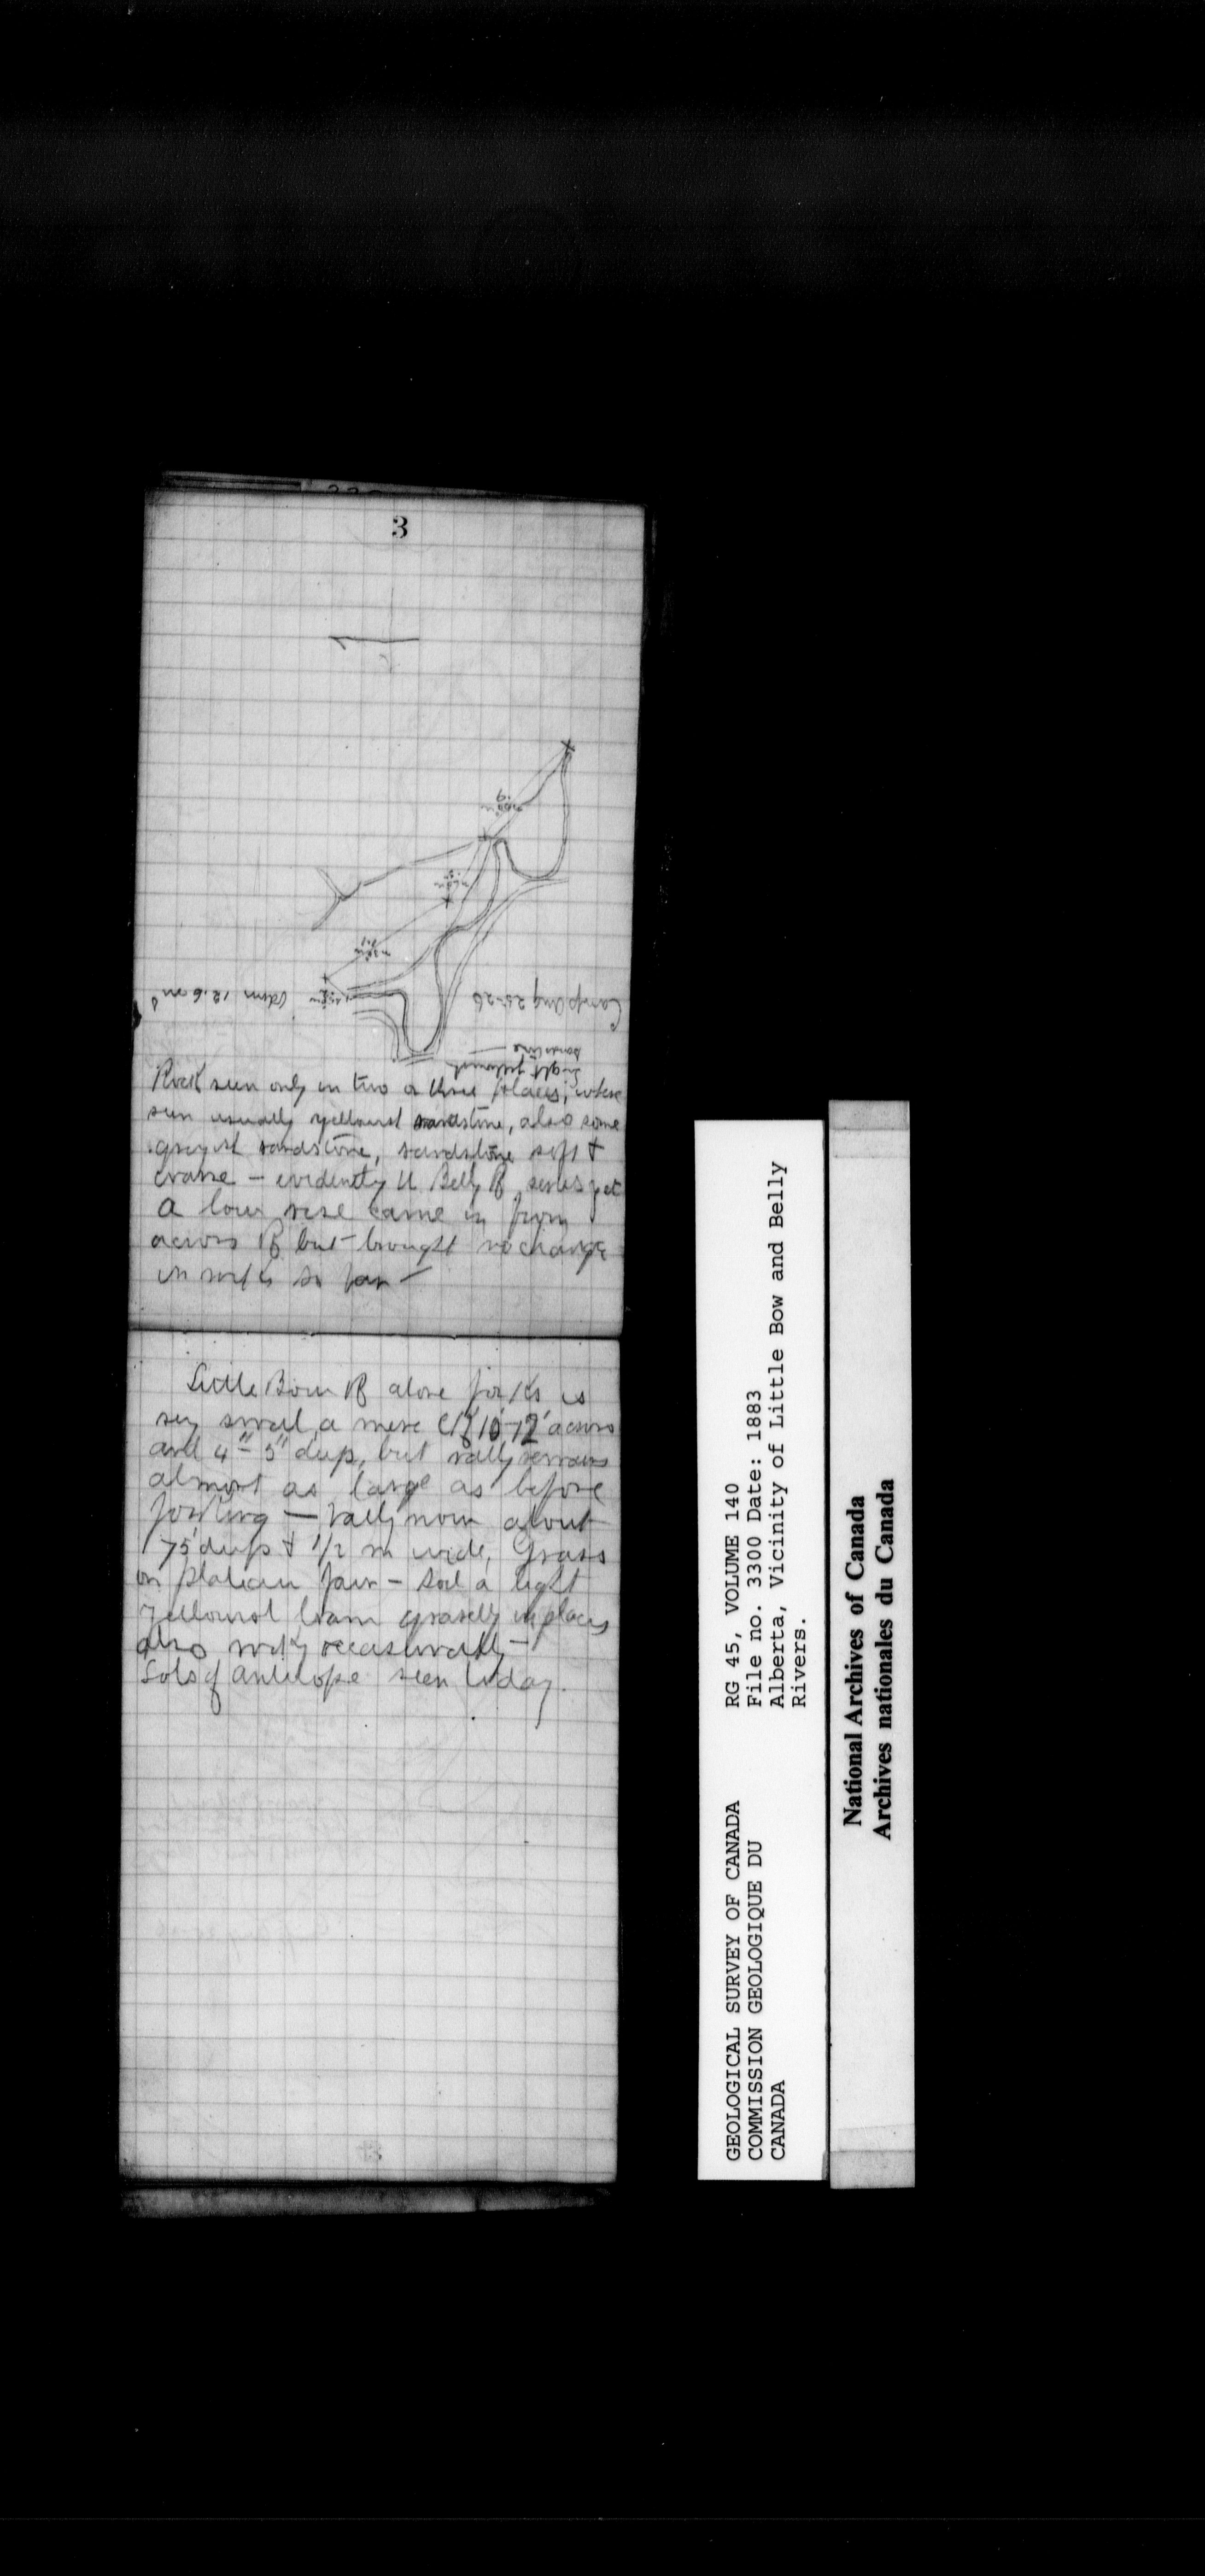 3
Camp Aug 25-26
bright yellowish
sandstone
Rock seen only in two or three places, where
seen usually yellowish sandstone, also some
greyish sandstone, sandstone soft &
coarse – evidently U Belly R series yet
A low rise came in from
across R but brought no change
in rocks so far –
Little Bow R above forks is
very small, a mere Ck 10'-12' across
and 4" – 5" deep, but vally remains
almost as large as before
forking – vally now about
75' deep & 1/2 m wide. Grass
on plateau fair – soil a light
yellowish loam gravelly in places
also rocky occasionally –
Lots of antelope seen today.
GEOLOGICAL SURVEY OF CANADA
COMMISSION GEOLOGIQUE DU
CANADA
RG 45, VOLUME 140
File no. 3300 Date: 1883
Alberta, Vicinity of Little Bow and Belly
Rivers.
National Archives of Canada
Archives nationales du Canada